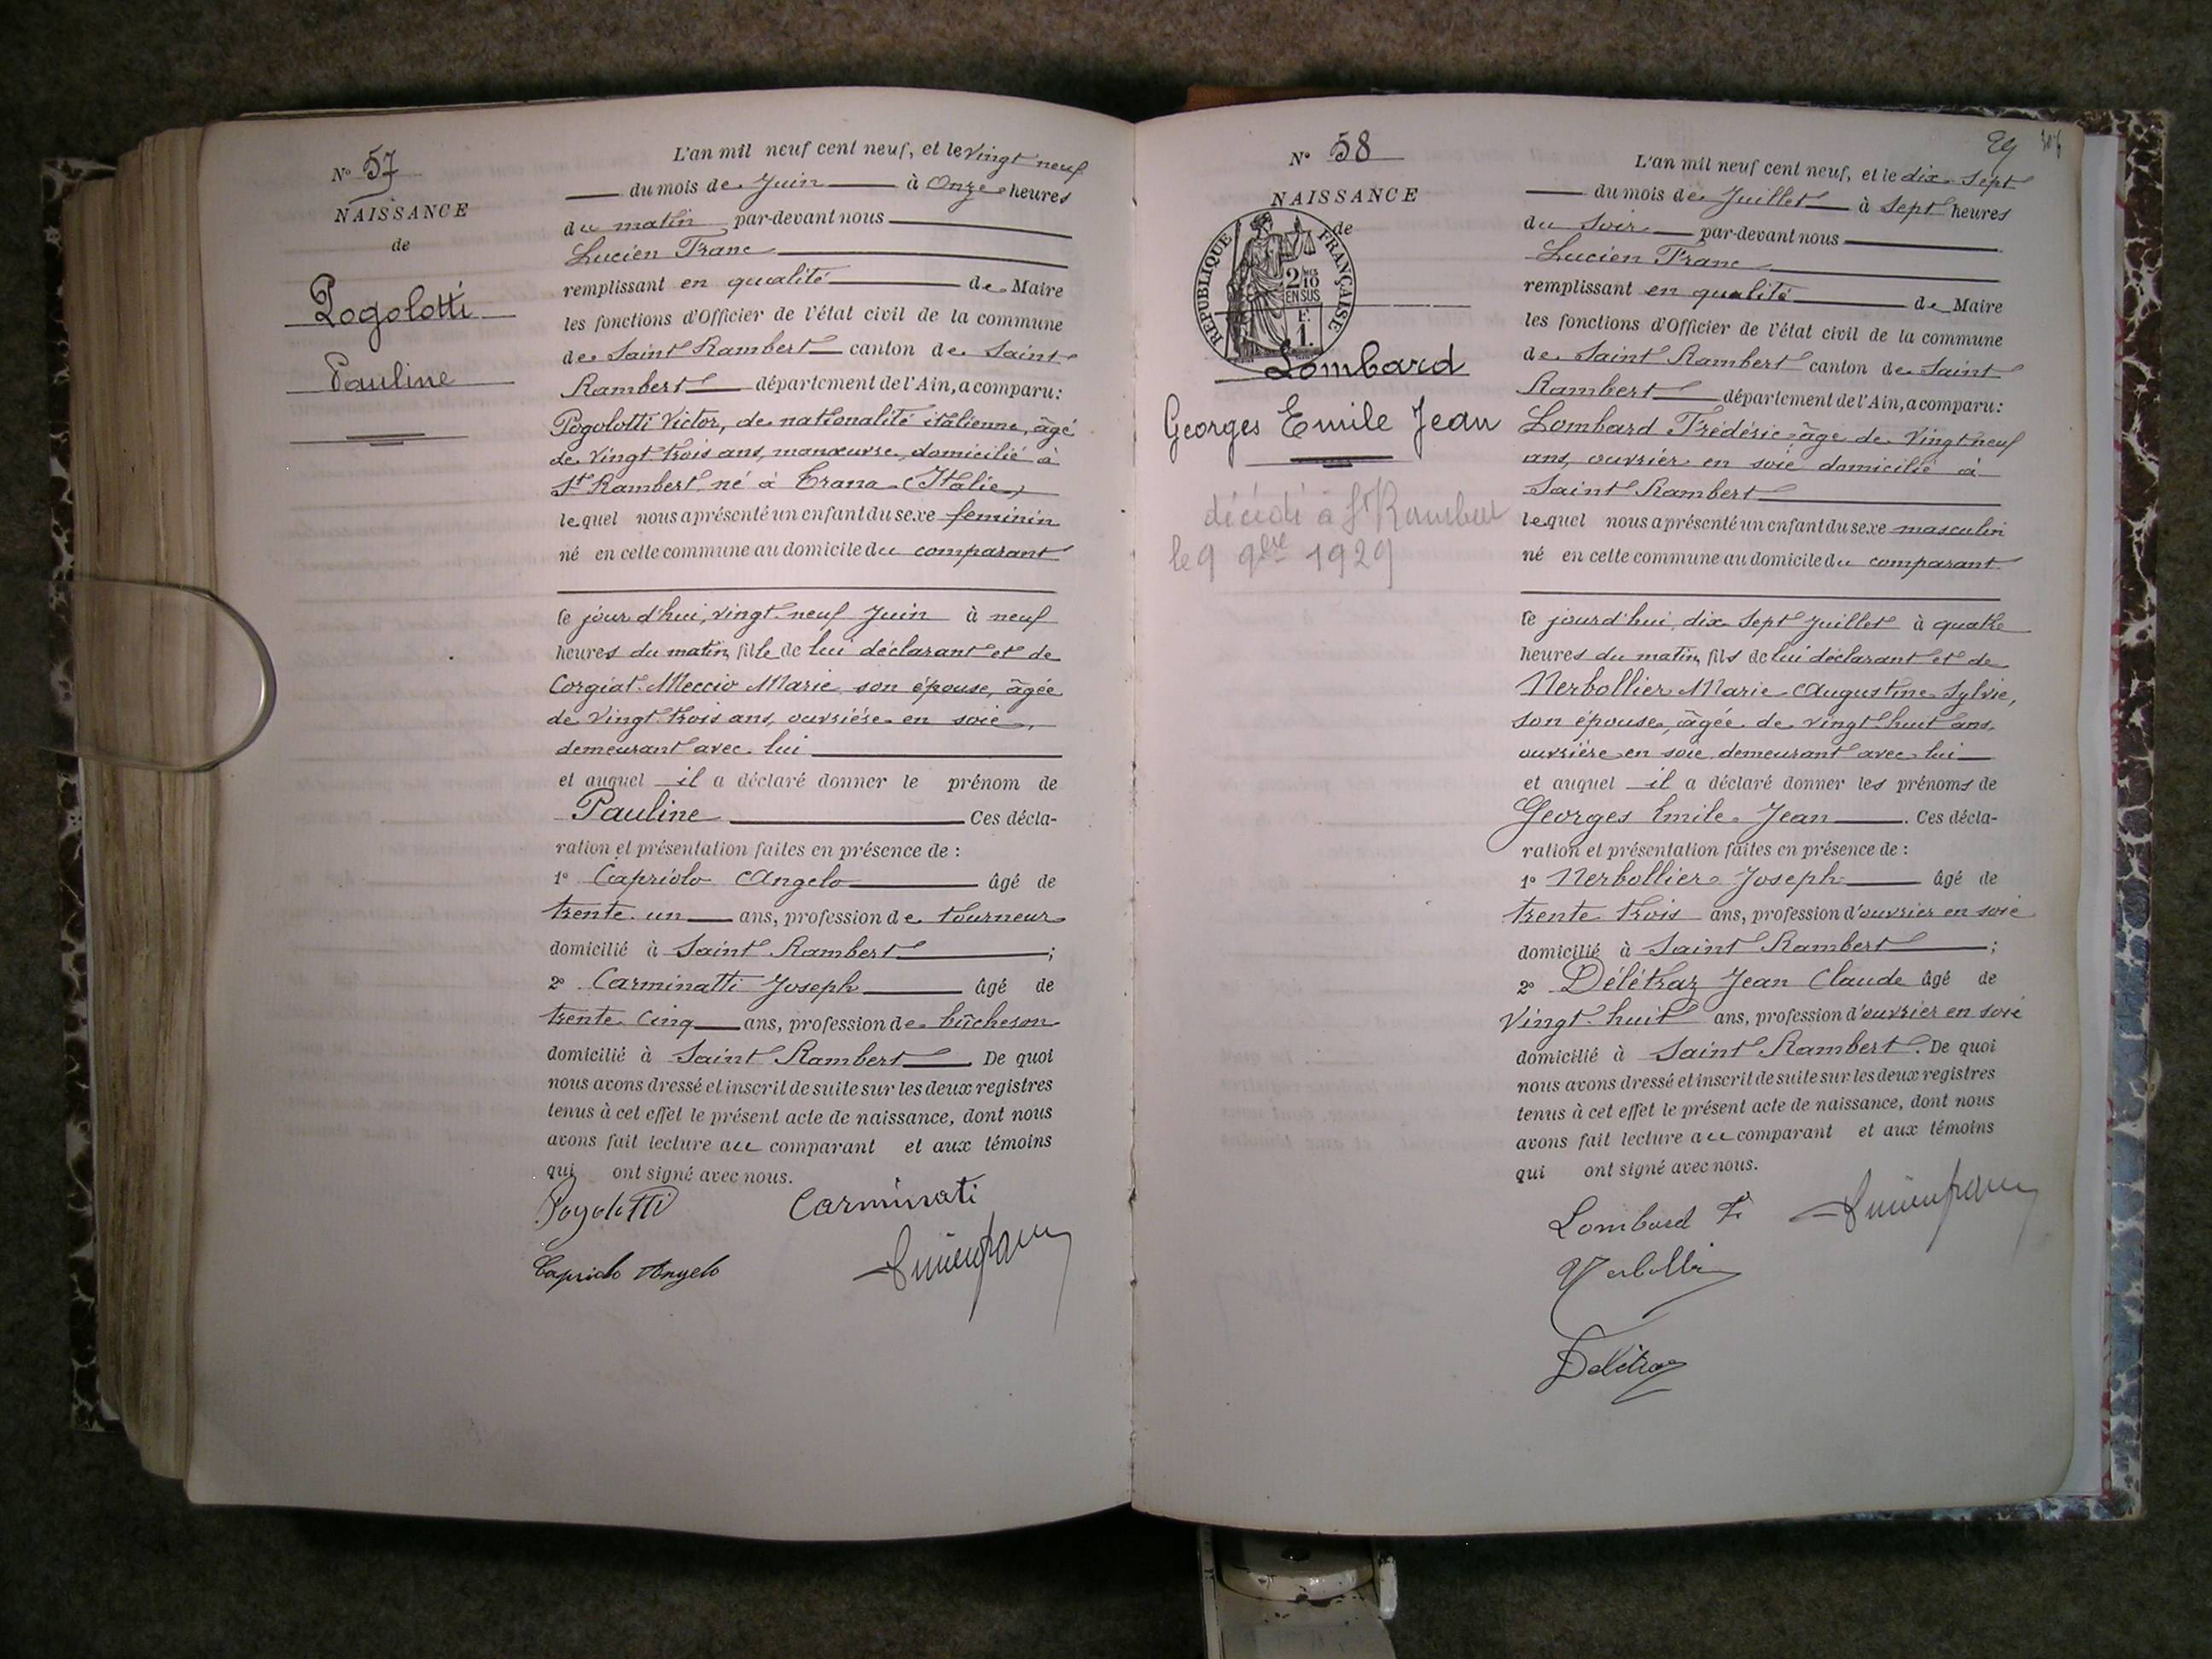 N° 57
NAISSANCE
de
Pogolotti
Pauline
L'an mil neuf cent neuf, et le vingt neuf
du mois de Juin à Onze heures
du matin par-devant nous
Lucien Franc
remplissant en qualité de Maire
les fonctions d'Officier de l'état civil de la commune
de Saint Rambert canton de Saint
Rambert département de l'Ain, a comparu:
Pogolotti Victor, de nationalité italienne, âgé
de vingt trois ans, manœuvre, domicilié à
St Rambert né à Trana (Italie)
lequel nous a présenté un enfant du sexe feminin
né en cette commune au domicile du comparant
ce jour d'hui, vingt neuf Juin à neuf
heures du matin, fille de lui déclarant et de
Corgiat Meccio Marie son épouse, âgée
de vingt trois ans, ouvrière en soie,
demeurant avec lui
et auquel il a déclaré donner le prénom de
Pauline Ces décla-
ration et présentation faites en présence de :
1° Capriolo Angelo âgé de
trente un ans, profession de tourneur
domicilié à Saint Rambert ;
2° Carminatti Joseph âgé de
trente cinq ans, profession de bûcheron
domicilié à Saint Rambert De quoi
nous avons dressé et inscrit de suite sur les deux registres
tenus à cet effet le présent acte de naissance, dont nous
avons fait lecture au comparant et aux témoins
qui ont signé avec nous.
Pogolotti Carminati
Capriolo Angelo
29 306
N° 58
NAISSANCE
de
RÉPUBLIQUE FRANÇAISE
2/10
EN SUS
F.
1.
Lombard
Georges Emile Jean
décédé à St Rambert
le 9 9bre 1929
L'an mil neuf cent neuf, et le dix Sept
du mois de Juillet à Sept heures
du Soir par-devant nous
Lucien Franc
remplissant en qualité de Maire
les fonctions d'Officier de l'état civil de la commune
de Saint Rambert canton de Saint
Rambert département de l'Ain, a comparu:
Lombard Frédéric âgé de Vingt neuf
ans, ouvrier en soie domicilié à
Saint Rambert
lequel nous a présenté un enfant du sexe masculin
né en cette commune au domicile du comparant
ce jourd'hui, dix Sept Juillet à quatre
heures du matin, fils de lui déclarant et de
Nerbollier Marie Augustine Sylvie,
son épouse, âgée de vingt huit ans,
ouvrière en soie demeurant avec lui
et auquel il a déclaré donner les prénoms de
Georges Emile Jean . Ces décla-
ration et présentation faites en présence de :
1° Nerbollier Joseph âgé de
trente trois ans, profession d'ouvrier en soie
domicilié à Saint Rambert ;
2° Délétraz Jean Claude âgé de
Vingt huit ans, profession d'ouvrier en soie
domicilié à Saint Rambert. De quoi
nous avons dressé et inscrit de suite sur les deux registres
tenus à cet effet le présent acte de naissance, dont nous
avons fait lecture au comparant et aux témoins
qui ont signé avec nous.
Lombard F.